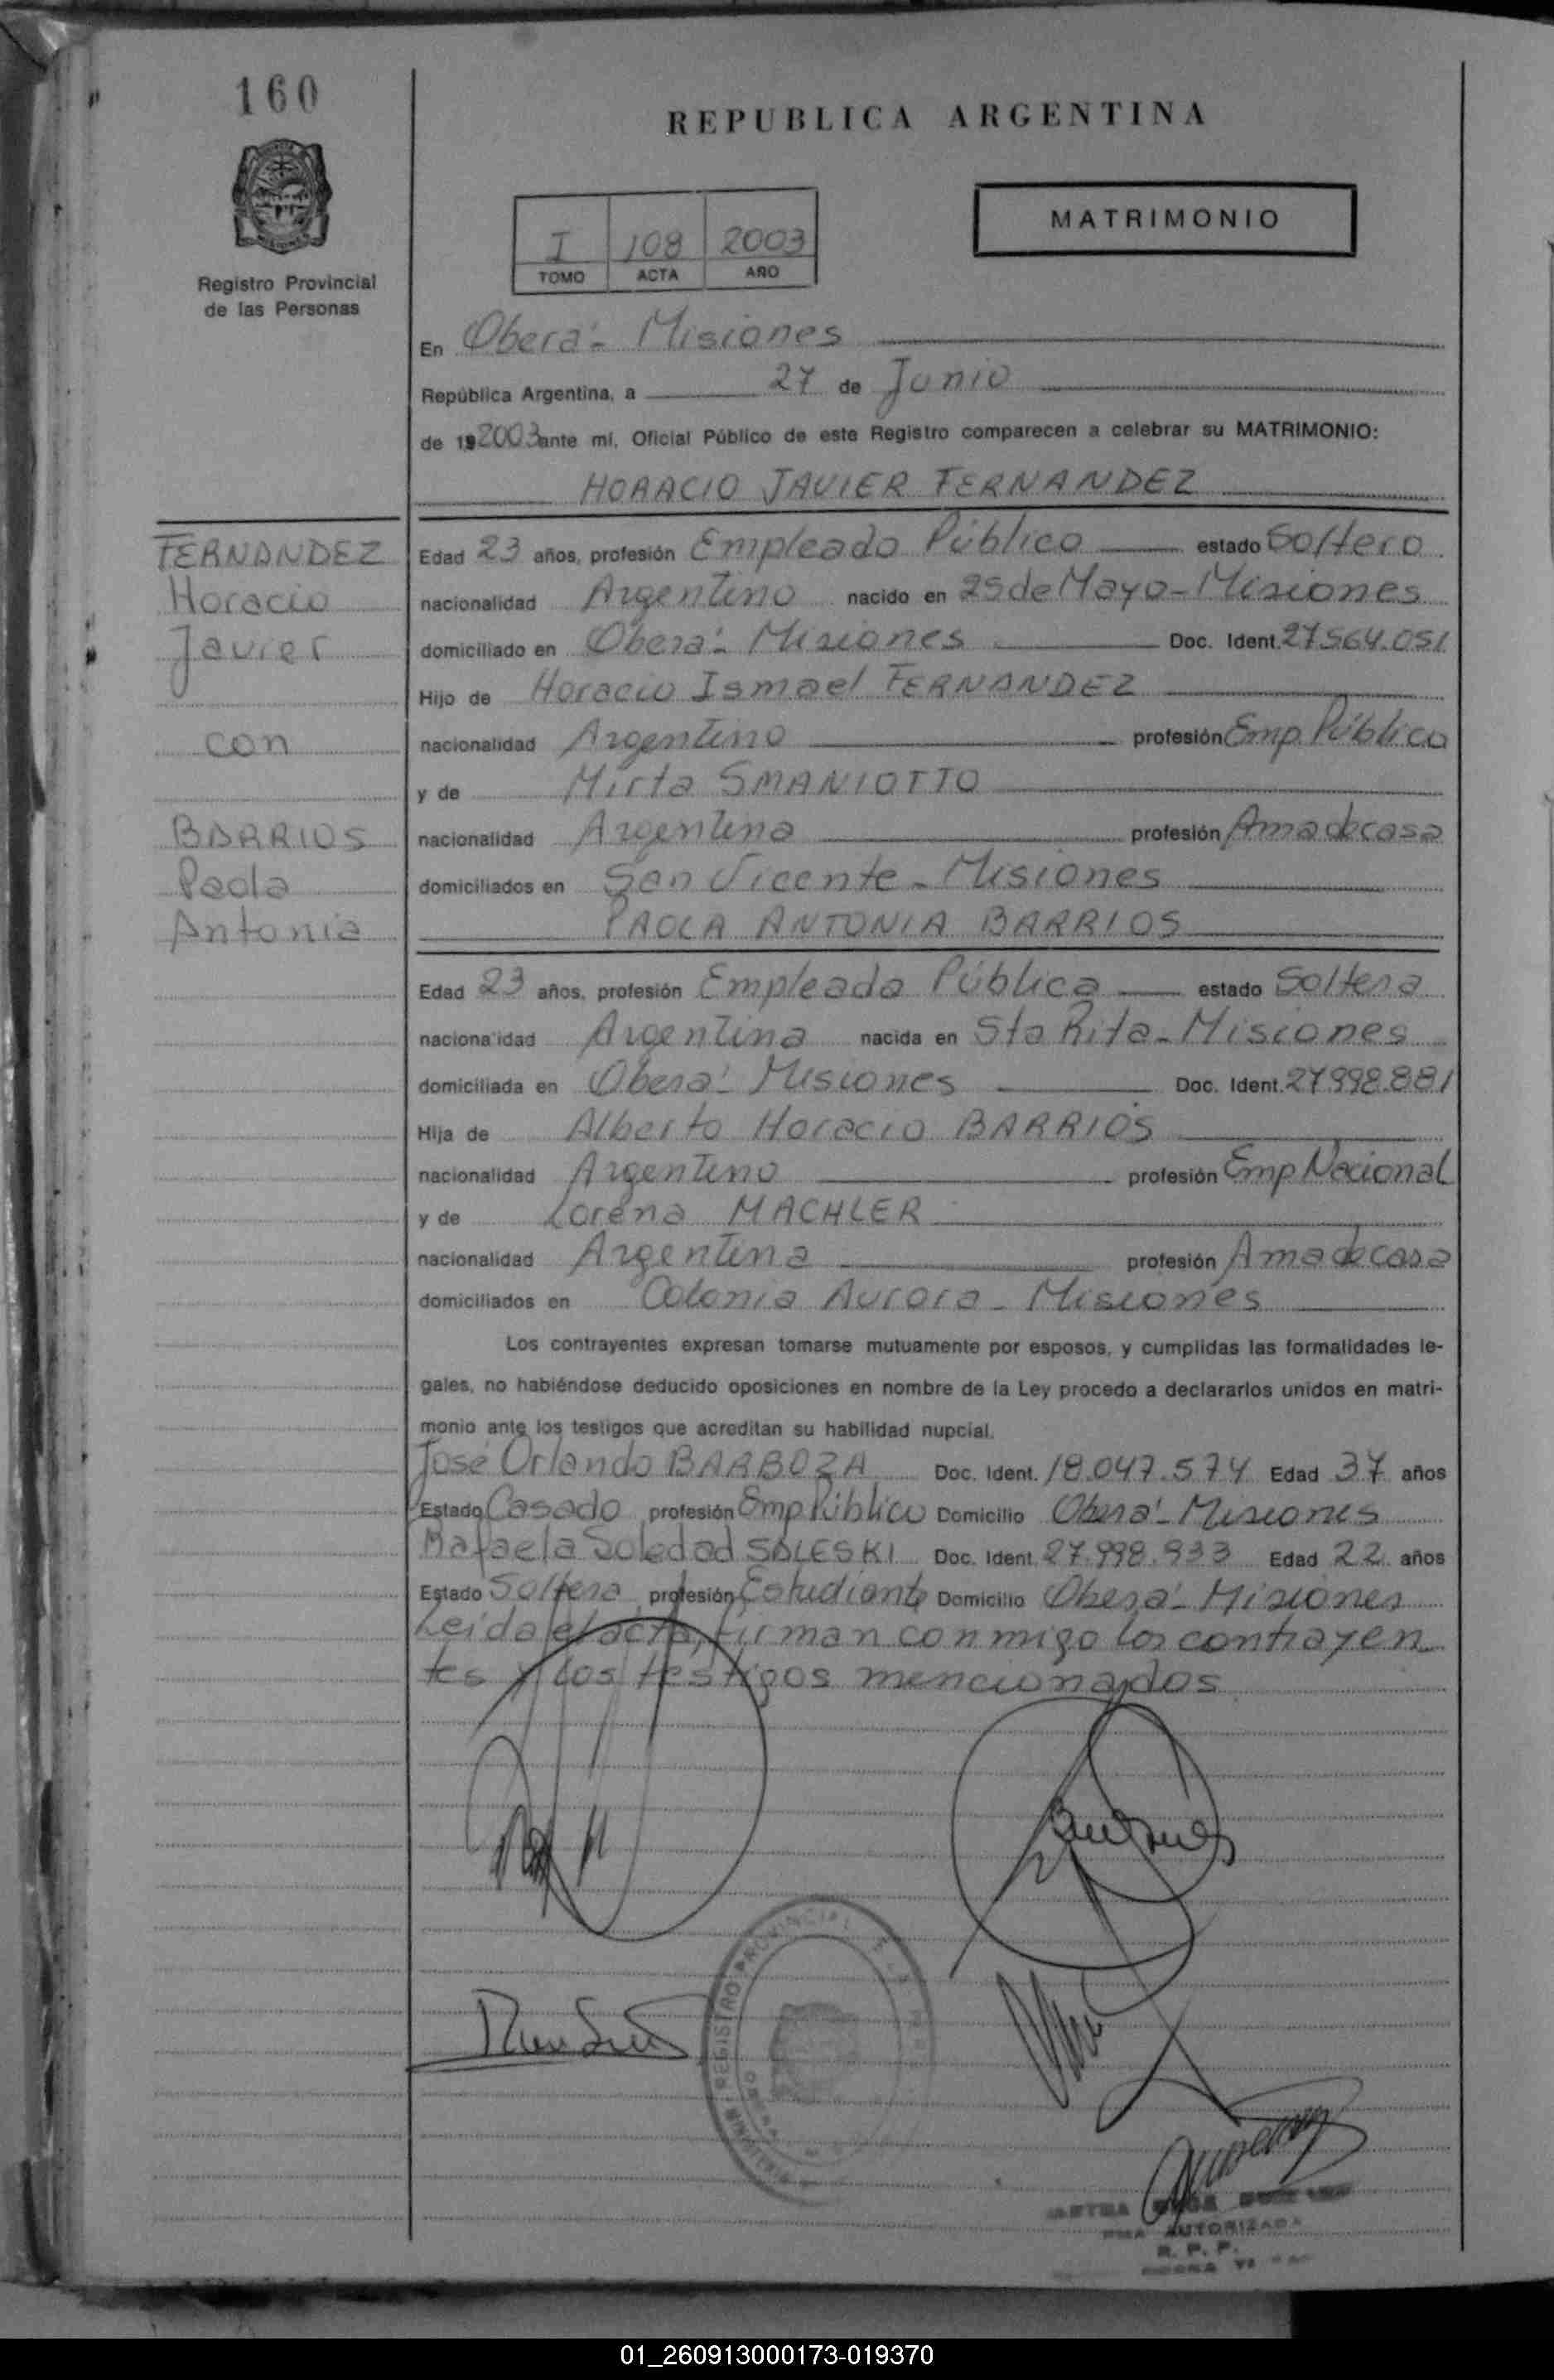 160
REPUBLICA ARGENTINA
MATRIMONIO
I 108 2003
TOMO ACTA AÑO
Registro Provincial
de las Personas
En Oberá - Misiones
República Argentina, a 27 de Junio
de 192003 ante mí, Oficial Público de este Registro comparecen a celebrar su MATRIMONIO:
HORACIO JAVIER FERNANDEZ
FERNANDEZ
Horacio
Javier
con
BARRIOS
Paola
Antonia
Edad 23 años, profesión Empleado Público estado Soltero
nacionalidad Argentino nacido en 25 de Mayo - Misiones
domiciliado en Oberá - Misiones Doc. Ident. 27564.051
Hijo de Horacio Ismael FERNANDEZ
nacionalidad Argentino profesión Emp. Público
y de Mirta SMANIOTTO
nacionalidad Argentina profesión Ama de casa
domiciliados en San Vicente - Misiones
PAOLA ANTONIA BARRIOS
Edad 23 años, profesión Empleada Pública estado Soltera
nacionalidad Argentina nacida en Sta Rita - Misiones
domiciliada en Oberá - Misiones Doc. Ident. 27998.881
Hija de Alberto Horacio BARRIOS
nacionalidad Argentino profesión Emp Nacional
y de Lorena MACHLER
nacionalidad Argentina profesión Ama de casa
domiciliados en Colonia Aurora - Misiones
Los contrayentes expresan tomarse mutuamente por esposos, y cumplidas las formalidades le-
gales, no habiéndose deducido oposiciones en nombre de la Ley procedo a declararlos unidos en matri-
monio ante los testigos que acreditan su habilidad nupcial.
José Orlando BARBOZA Doc. Ident. 18.047.574 Edad 37 años
Estado Casado profesión Emp Público Domicilio Oberá - Misiones
Rafaela Soledad SALESKI Doc. Ident. 27.998.933 Edad 22 años
Estado Soltera profesión Estudiante Domicilio Oberá - Misiones
Leida el acta, firman conmigo los contrayen
tes y los testigos mencionados
REGISTRO PROVINCIAL
AUTORIZADA
R. P. P.
01_260913000173-019370